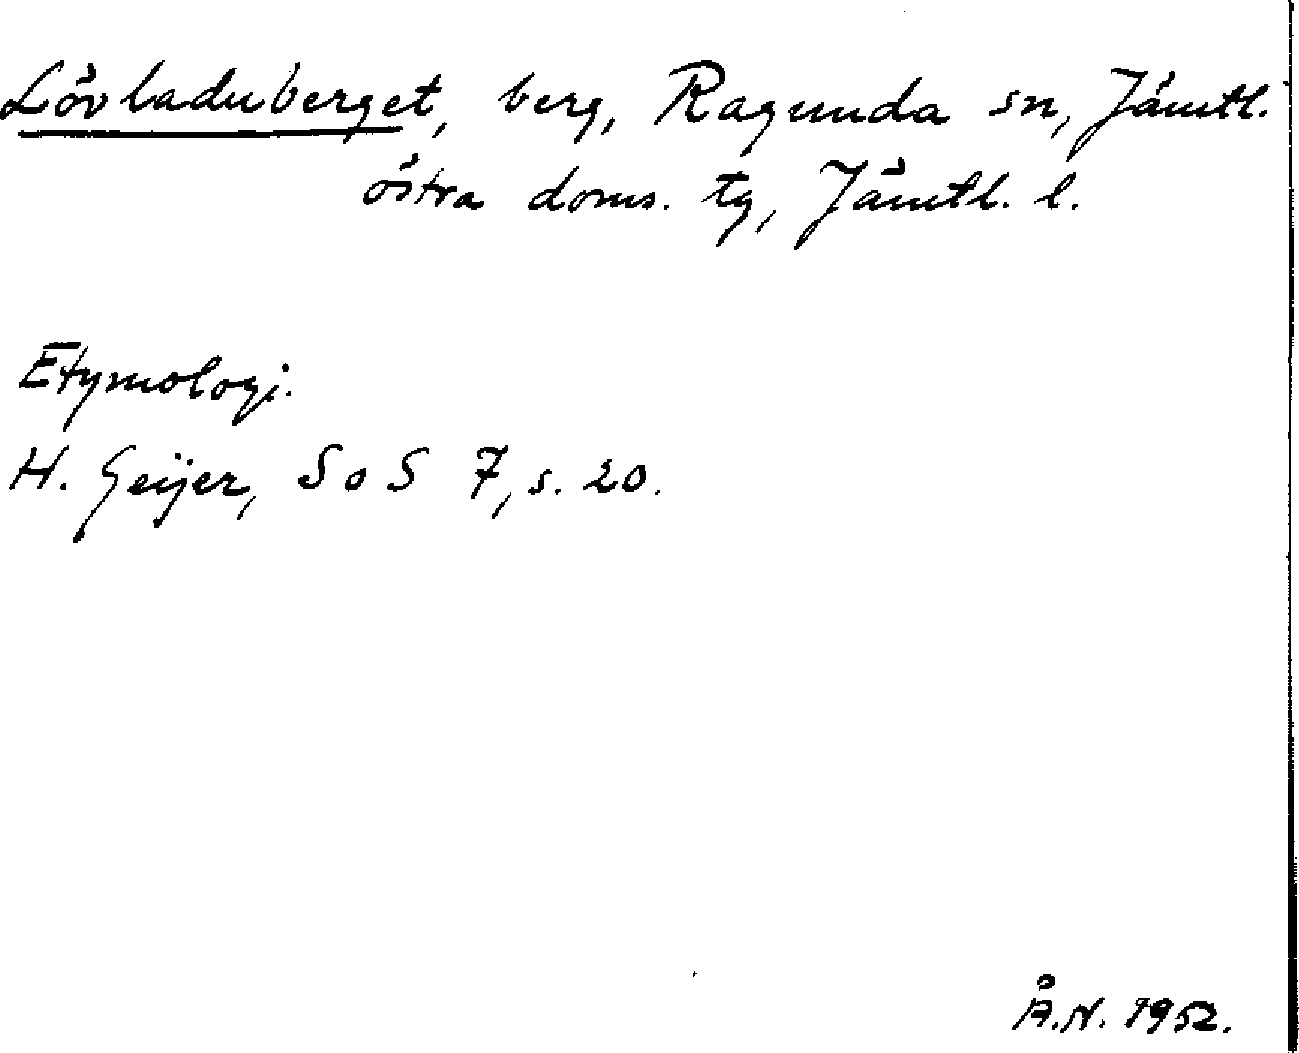 Lövladuberget, berg, Ragunda sn, Jämtl.
östra doms. tg, Jämtl. l.
Etymologi.
H. Geijer, SoS 7, s. 20.
Å.N. 1952.